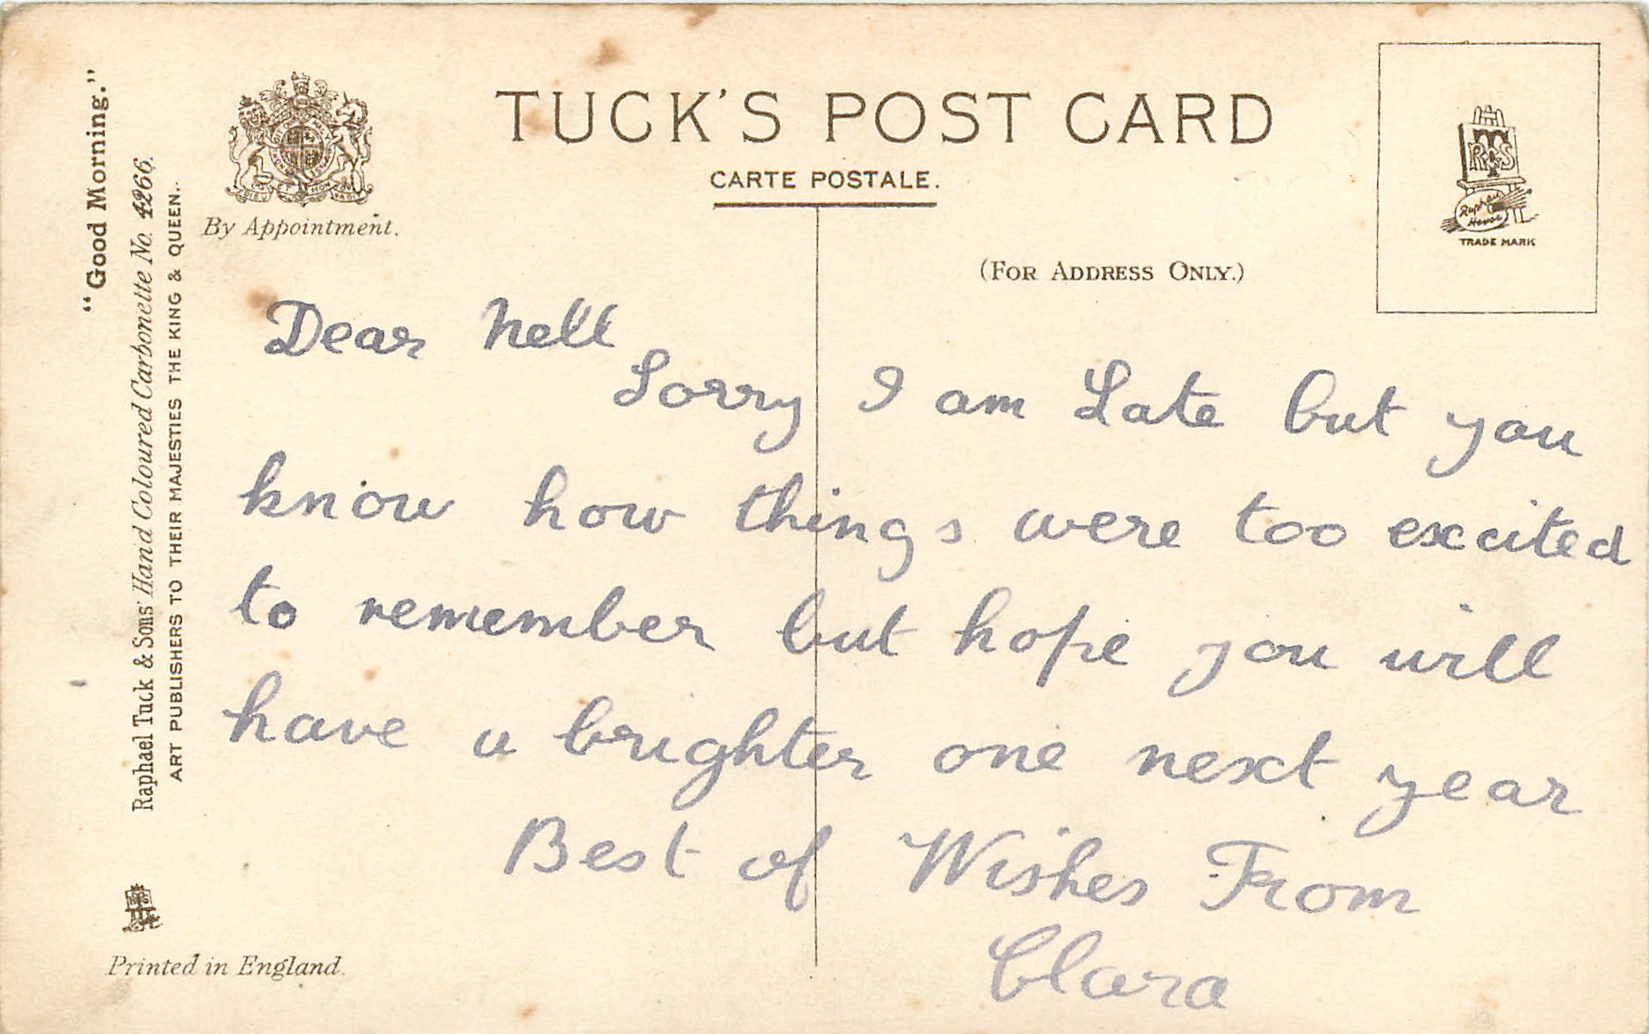 TUCK'S POST CARD
CARTE POSTALE.
(FOR ADDRESS ONLY.)
By Appointment.
TRADE MARK
"Good Morning."
Raphael Tuck & Sons' Hand Coloured Carbonette No. 4266.
ART PUBLISHERS TO THEIR MAJESTIES THE KING & QUEEN.
Printed in England.
Dear Nell
Sorry I am Late but you
know how things were too excited
to remember but hope you will
have a brighter one next year
Best of Wishes From
Clara